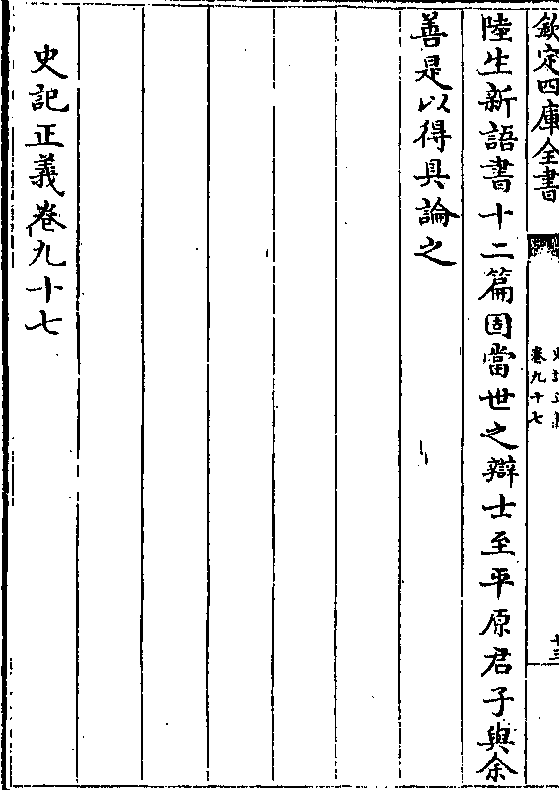 欽定四庫全書
史記正義
卷九十七
十三
陸生新語書十二篇固當世之辯士至平原君子與余
善是以得具論之
史記正義卷九十七